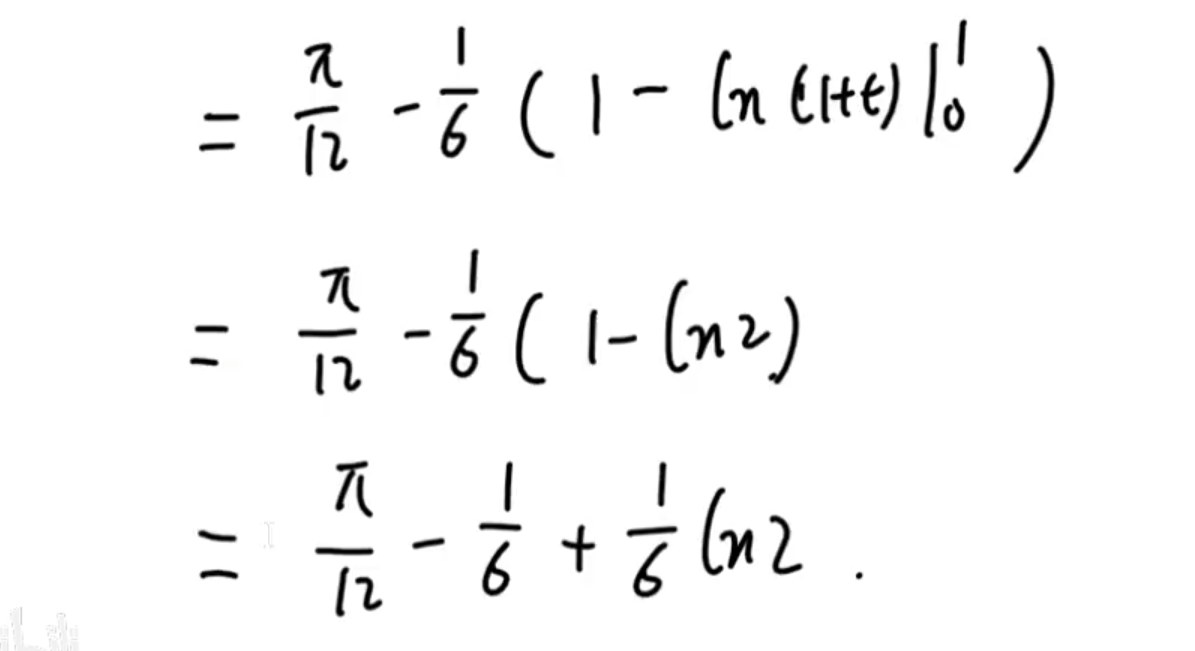 = π/12 - 1/6 ( 1 - ln (1+t) |₀¹ )
= π/12 - 1/6 ( 1 - ln 2 )
= π/12 - 1/6 + 1/6 ln 2 .